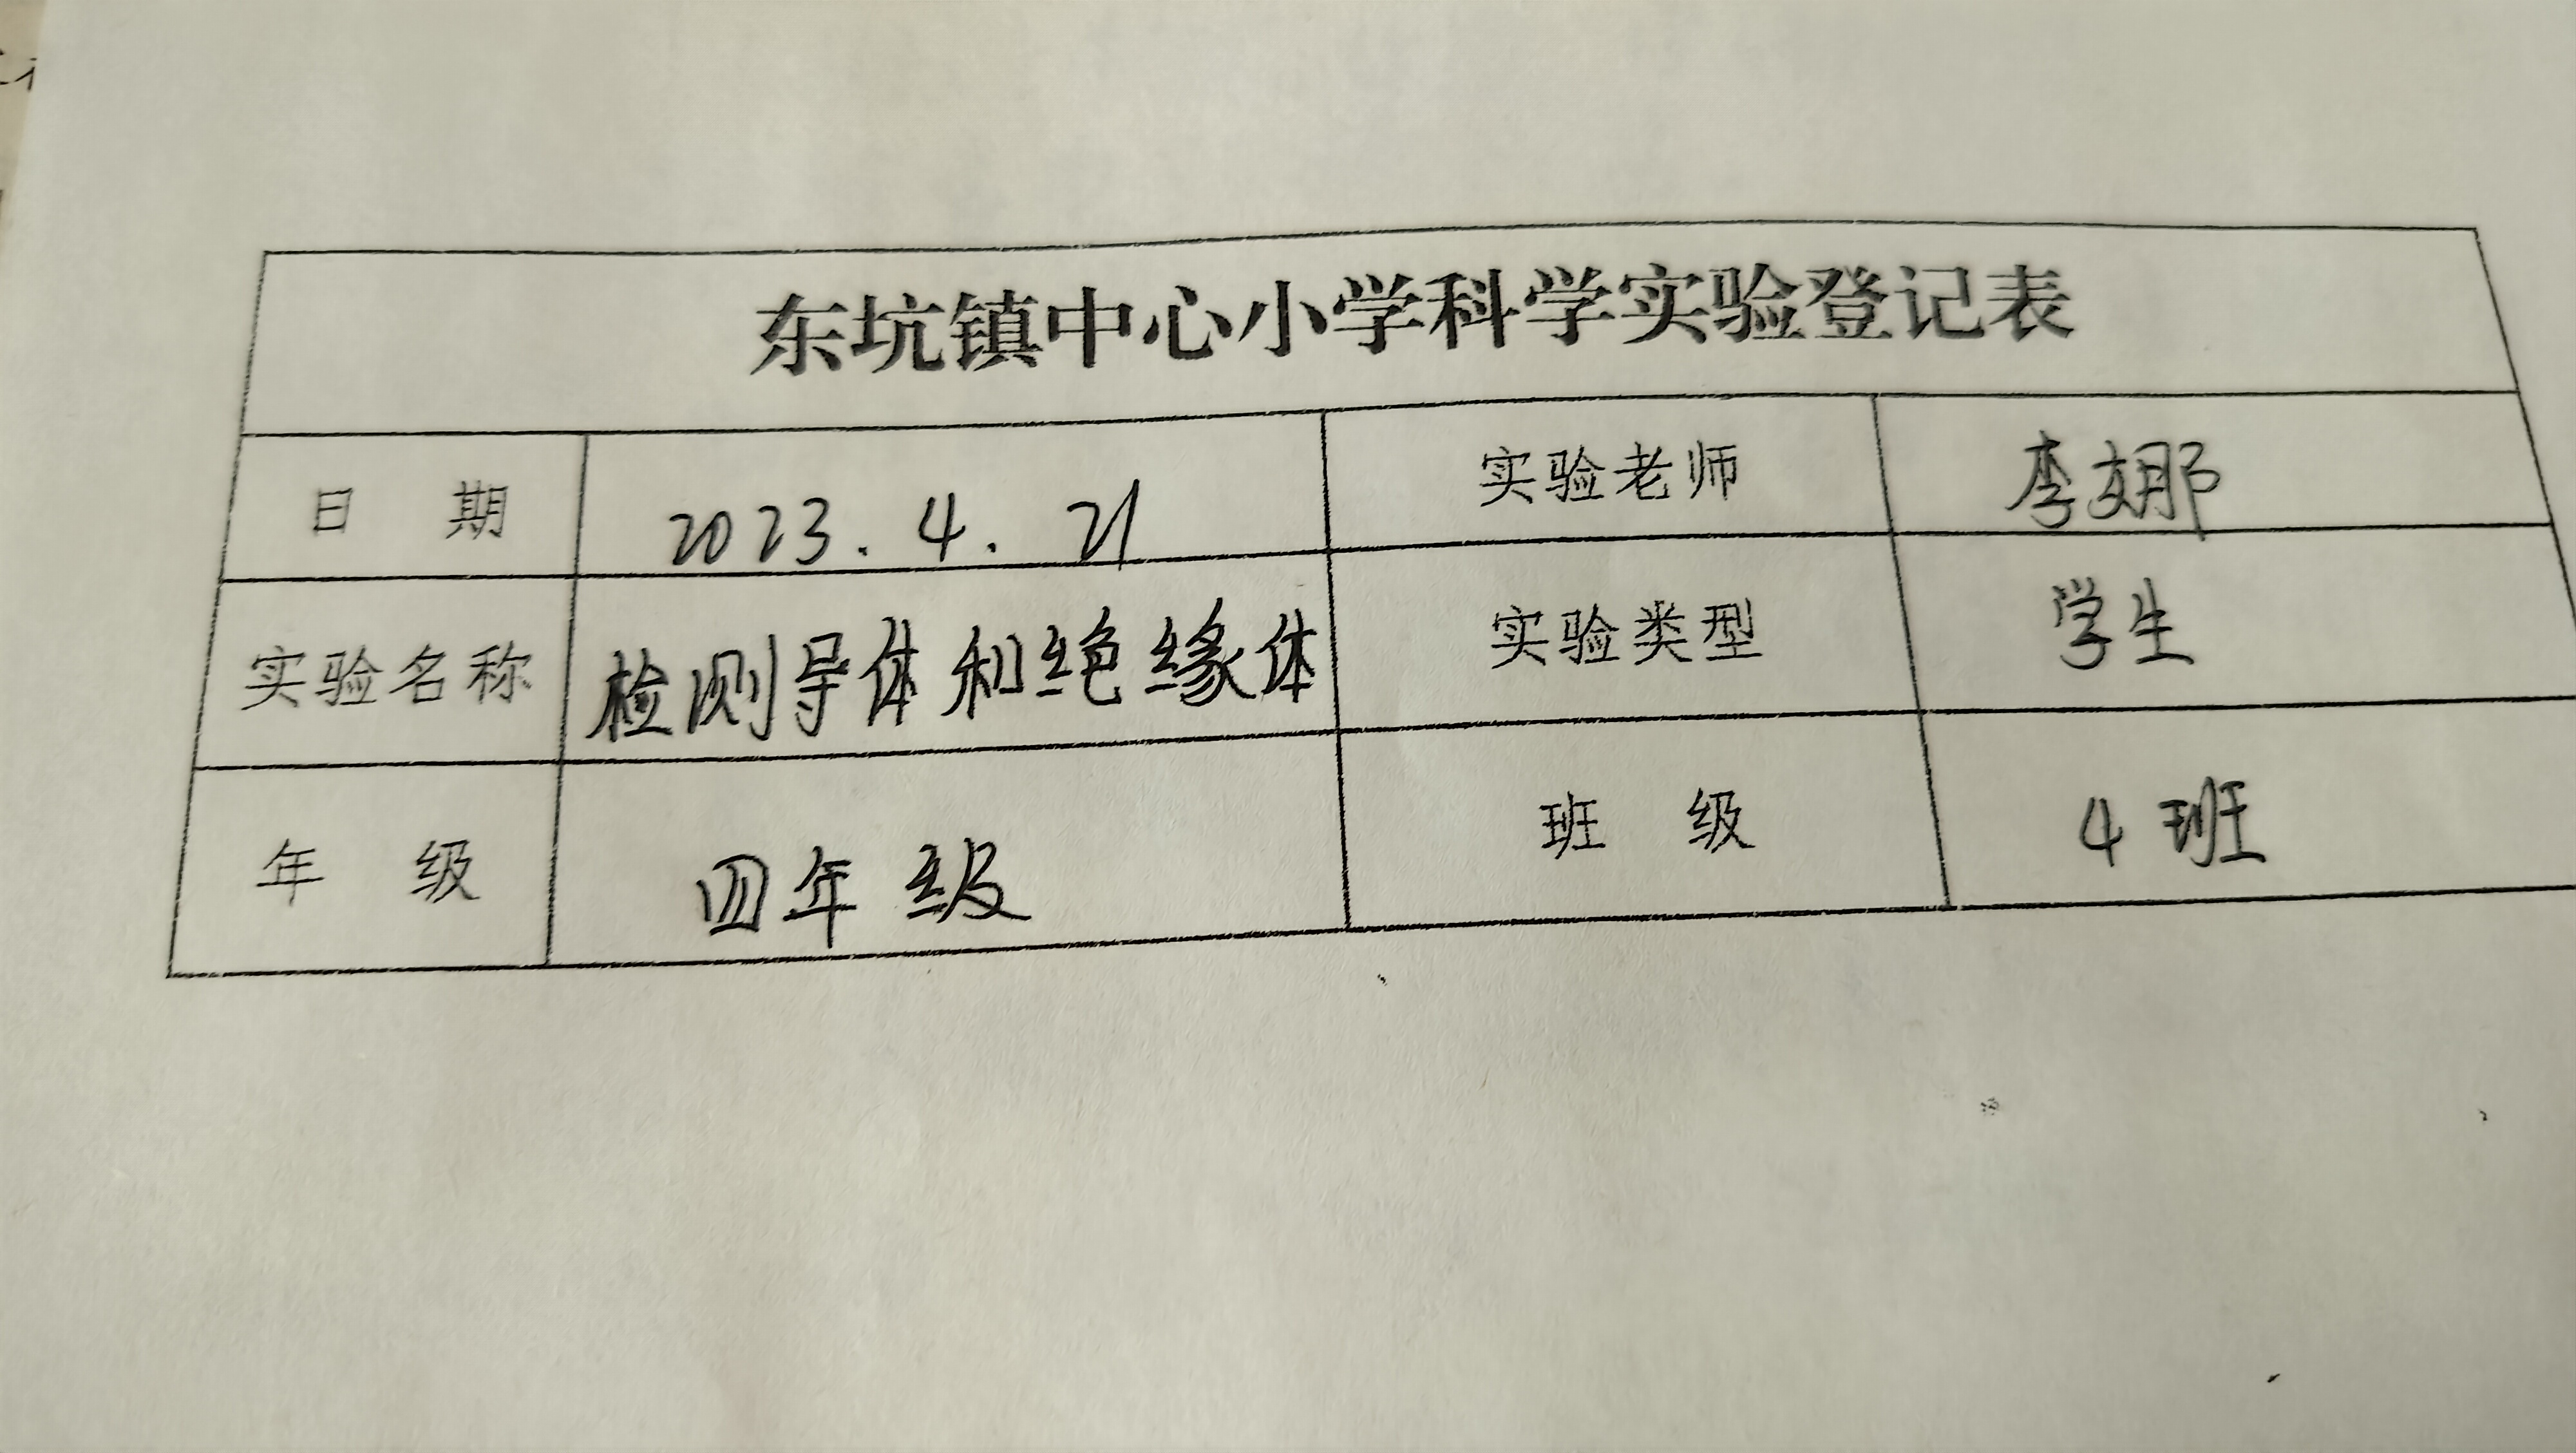 东坑镇中心小学科学实验登记表
日 期 2023.4.21 实验老师 李娜
实验名称 检测导体和绝缘体 实验类型 学生
年 级 四年级 班 级 4班